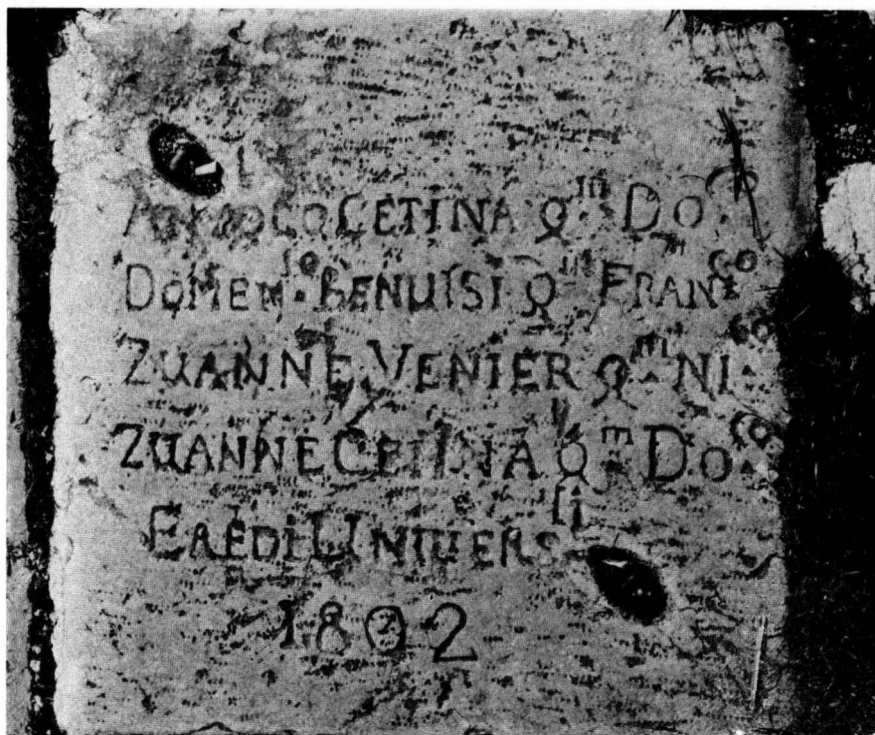 COCETINA Q.m DO.co
DOMEN.co BENUISI Q.m FRAN.co
ZUANNE VENIER Q.m NI.co
ZUANNE CETINA Q.m DO.co
EREDI UNIUERS.li
1802